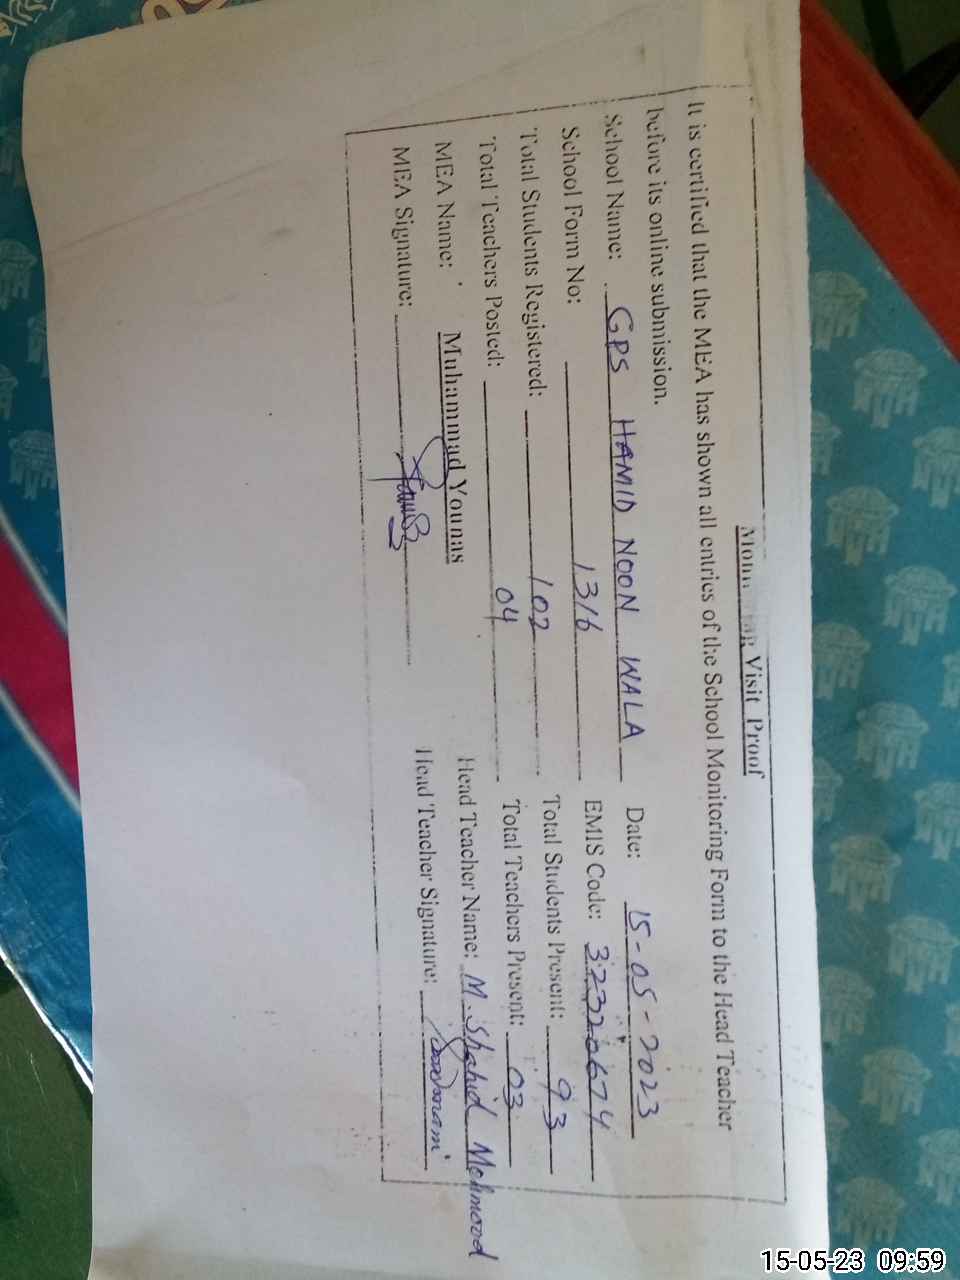 Monitoring Visit Proof
It is certified that the MEA has shown all entries of the School Monitoring Form to the Head Teacher
before its online submission.
School Name: GPS HAMID NOON WALA Date: 15-05-2023
School Form No: 1316 EMIS Code: 32320674
Total Students Registered: 102 Total Students Present: 93
Total Teachers Posted: 04 Total Teachers Present: 03
MEA Name: Muhammad Younas Head Teacher Name: M. Shahid Mehmood
MEA Signature: Head Teacher Signature:
15-05-23 09:59